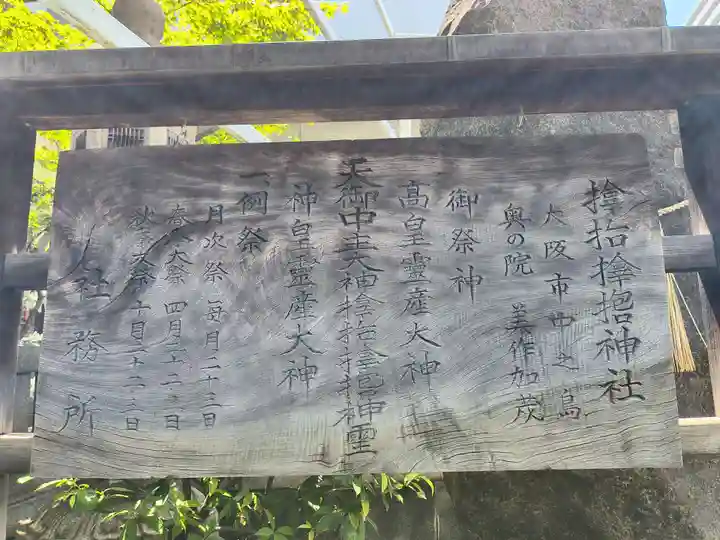 撿挡擇抱神社
大阪市中之島
奥の院 美作加茂
御祭神
高皇靈産大神
天御中主大神
神皇靈産大神
一、例祭
月次祭 毎月二十三日
春季大祭 四月二十二、三日
秋季大祭 十月二十二、三日
社務所